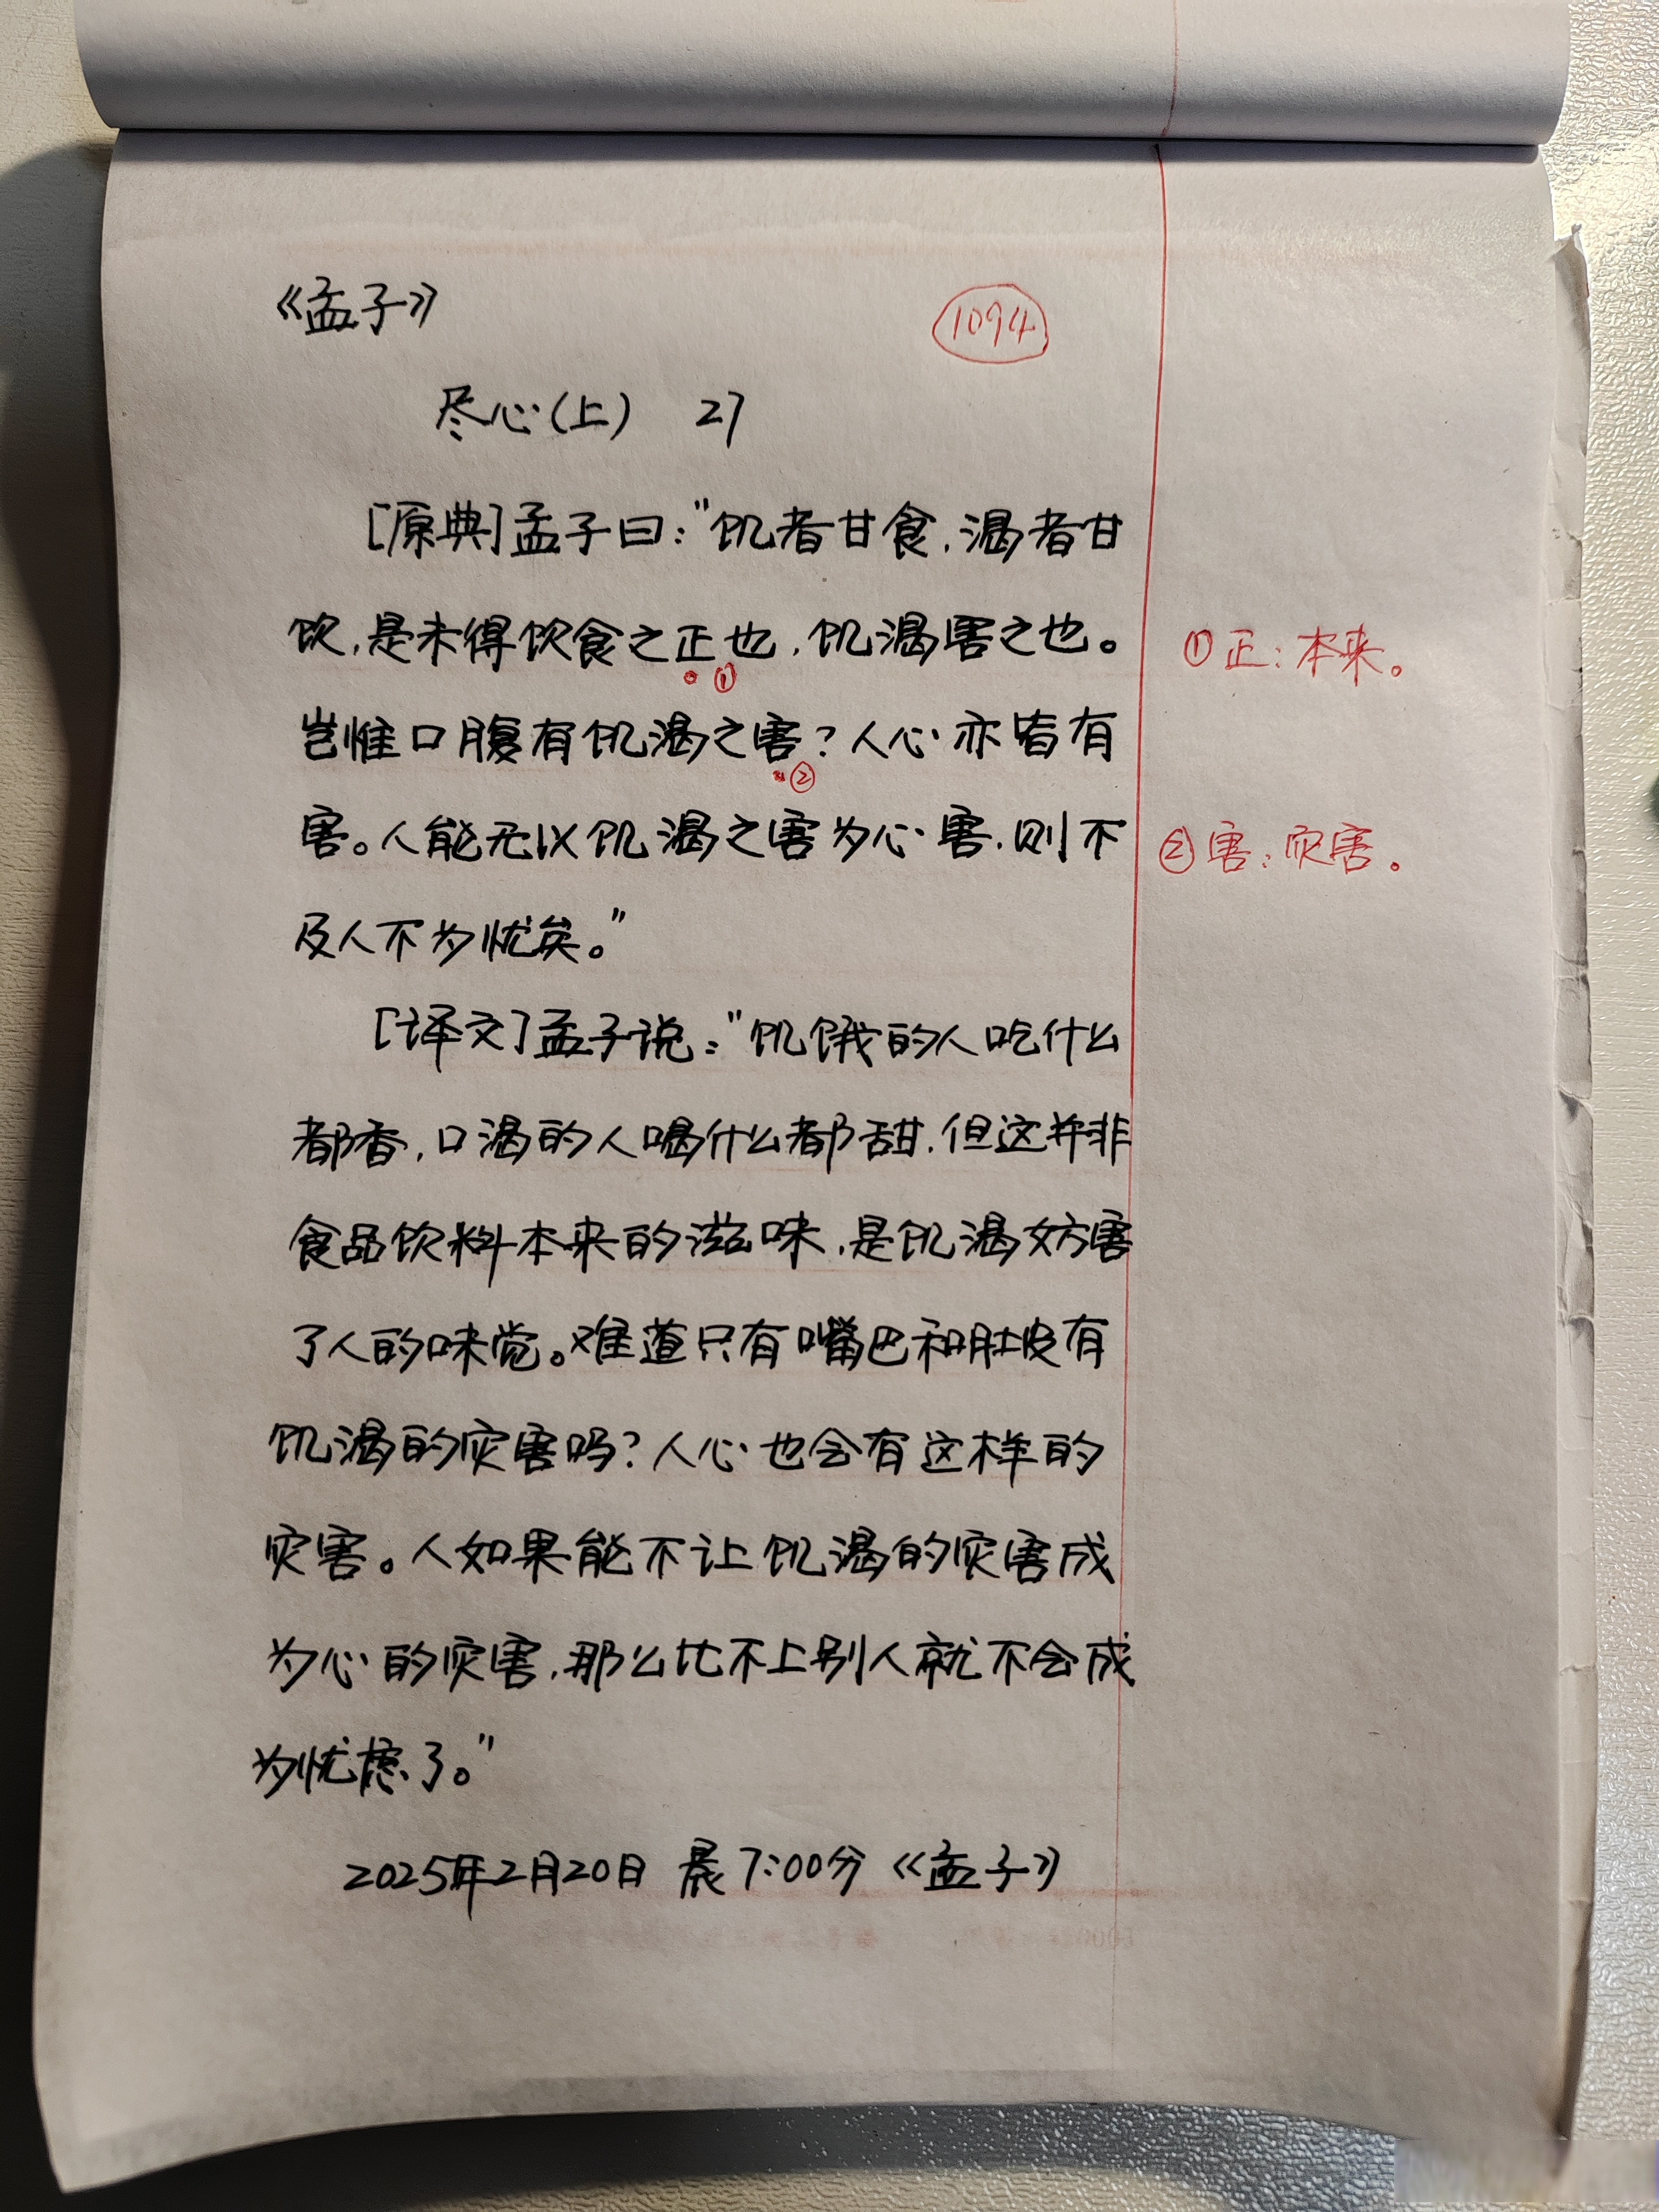 《孟子》
1094
尽心(上) 27
[原典]孟子曰："饥者甘食,渴者甘
饮,是未得饮食之正也,饥渴害之也。
①
①正:本来。
岂惟口腹有饥渴之害?人心亦皆有
②
害。人能无以饥渴之害为心害,则不
②害:灾害。
及人不为忧矣。"
[译文]孟子说："饥饿的人吃什么
都香,口渴的人喝什么都甜,但这并非
食品饮料本来的滋味,是饥渴妨害
了人的味觉。难道只有嘴巴和肚皮有
饥渴的灾害吗?人心也会有这样的
灾害。人如果能不让饥渴的灾害成
为心的灾害,那么比不上别人就不会成
为忧虑了。"
2025年2月20日 晨7:00分《孟子》